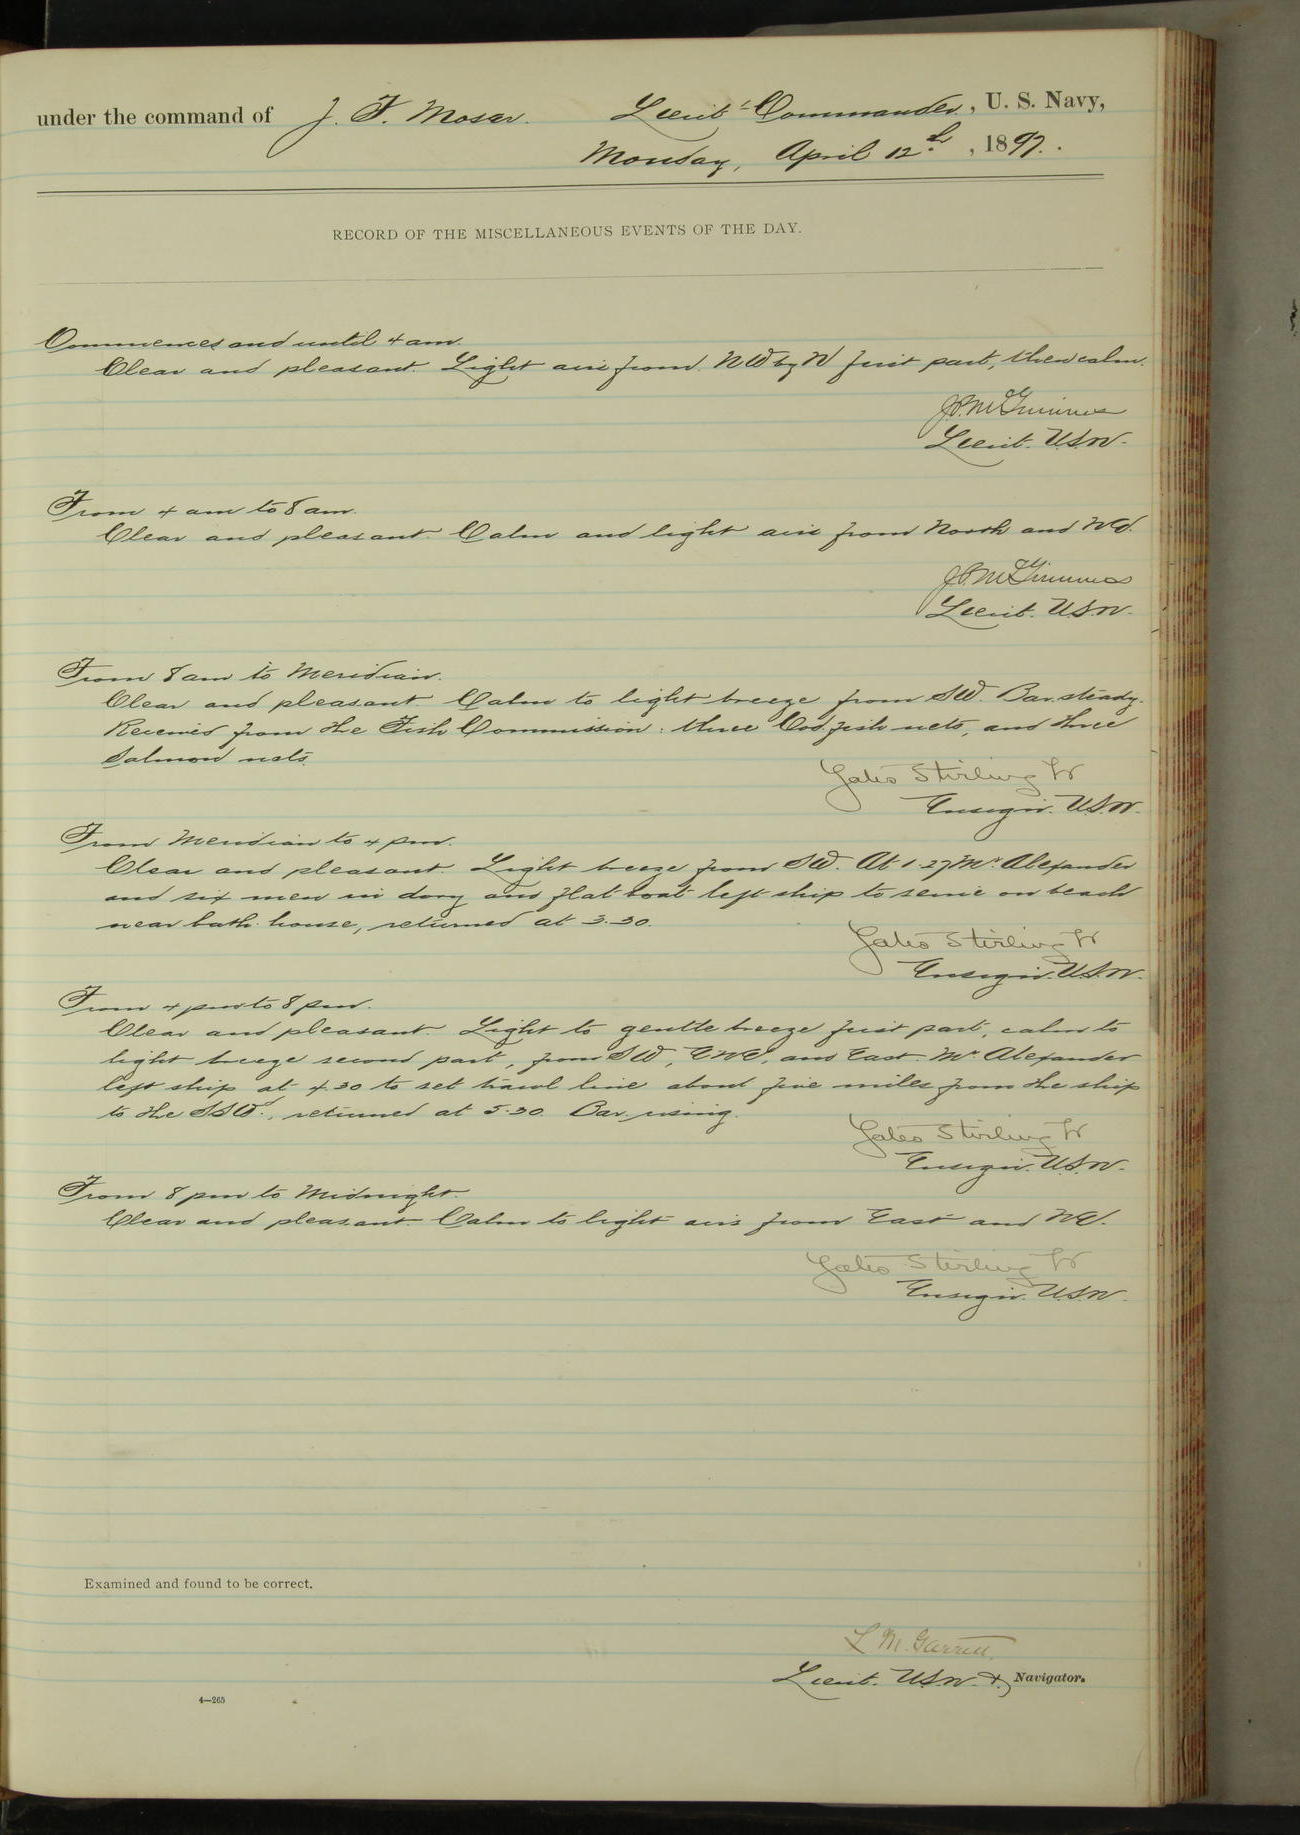 under the command of J. F. Moser. Lieut. Commander, U. S. Navy,
Monday, April 12th, 1897.
RECORD OF THE MISCELLANEOUS EVENTS OF THE DAY.
Commences and until 4 am.
Clear and pleasant. Light airs from NW by N first part, then calm.
J.P. McGuinness
Lieut. U.S.N.
From 4 am to 8 am.
Clear and pleasant. Calm and light airs from North and NE.
J.P. McGuinness
Lieut. U.S.N.
From 8 am to Meridian.
Clear and pleasant. Calm to light breeze from SW. Bar. steady.
Received from the Fish Commission: three Codfish nets, and three
Salmon nets.
Yates Stirling Jr
Ensign. U.S.N.
From Meridian to 4 pm.
Clear and pleasant. Light breeze from SW. At 1.27 Mr Alexander
and six men in dory and flat boat left ship to seine on beach
near bath-house, returned at 3.30.
Yates Stirling Jr
Ensign. U.S.N.
From 4 pm to 8 pm.
Clear and pleasant. Light to gentle breeze first part, calm to
light breeze second part, from SW, ENE, and East. Mr Alexander
left ship at 4.30 to set trawl line about five miles from the ship
to the SSWd., returned at 5.30. Bar. rising.
Yates Stirling Jr
Ensign. U.S.N.
From 8 pm to Midnight.
Clear and pleasant. Calm to light airs from East and NE.
Yates Stirling Jr
Ensign. U.S.N.
Examined and found to be correct.
L. M. Garrett,
Lieut. U.S.N. &, Navigator.
4—265